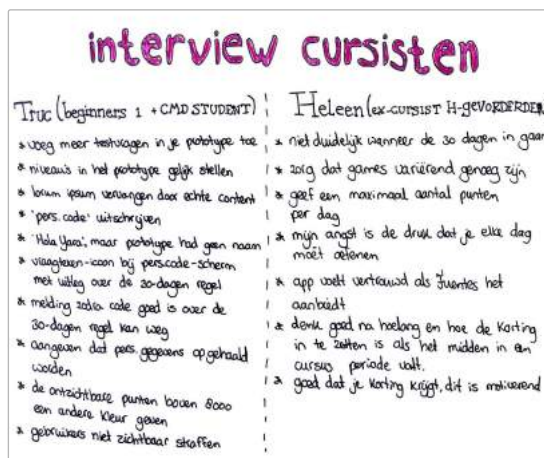 interview cursisten
Truc (beginners 1 + CMD STUDENT)
* voeg meer testvragen in je prototype toe
* niveau's in het prototype gelijk stellen
* lorum ipsum vervangen door echte content
* 'pers.code' uitschrijven
* 'Hola Yara', maar prototype had geen naam
* vraagteken-icon bij pers.code-scherm
met uitleg over de 30-dagen regel
* melding zodra code goed is over de
30-dagen regel kan weg
* aangeven dat pers. gegevens opgehaald
worden
* de ontzichtbare punten boven 8000
een andere kleur geven
* gebruikers niet zichtbaar straffen
Heleen (ex-CURSIST H-GEVORDERDEN
* niet duidelijk wanneer de 30 dagen in gaan
* zorg dat games variërend genoeg zijn
* geef een maximaal aantal punten
per dag
* mijn angst is de druk dat je elke dag
moét oefenen
* app voelt vertrouwd als Fuentes het
aanbiedt
* denk goed na hoelang en hoe de korting
in te zetten is als het midden in een
cursus periode valt.
* goed dat je korting krijgt, dit is motiverend